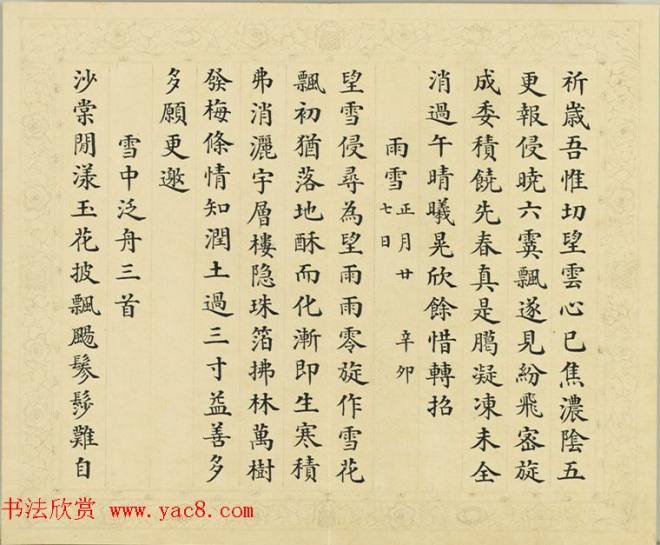 祈歲吾惟切望雲心已焦濃陰五
更報侵曉六霙飄遂見紛飛密旋
成委積饒先春真是臈凝凍未全
消過午晴曦晃欣餘惜轉招
雨雪 正月廿七日 辛卯
望雪侵尋為望雨雨零旋作雪花
飄初猶落地酥而化漸即生寒積
弗消灑宇層樓隐珠箔拂林萬樹
發梅條情知潤土過三寸益善多
多願更邀
雪中泛舟三首
沙棠閒漾玉花披飄颺鬖髿難自
书法欣赏 www.yac8.com